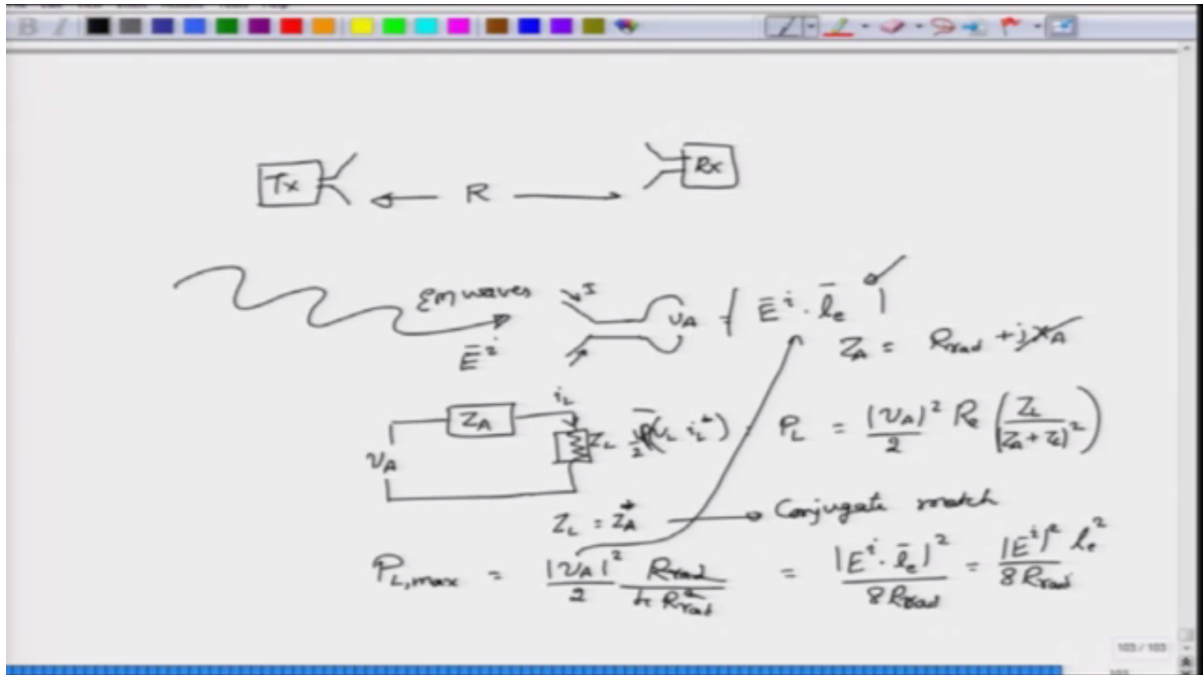 Tx
R
Rx
EM waves
I
v_A = | Ē^i · l̄_e |
Ē^i
Z_A = R_rad + jX_A
i_L
Z_A
Z_L
v_A
P_L = |v_A|^2 / 2 Re ( Z_L / |Z_A + Z_L|^2 )
Z_L = Z_A^* → Conjugate match
P_L,max = |v_A|^2 / 2 R_rad / 4 R_rad^2 = |E^i · l̄_e|^2 / 8 R_rad = |E^i|^2 l_e^2 / 8 R_rad
103 / 103